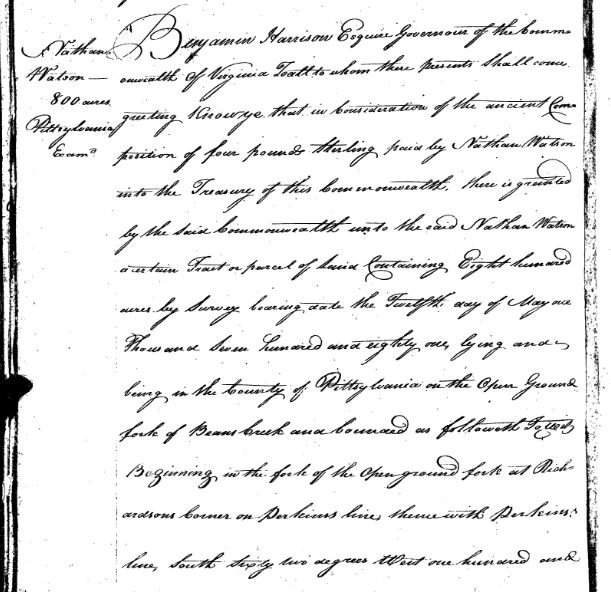 Nathan
Watson —
800 acres
Pittsylvania
Examd
Benjamin Harrison Esquire Governour of the Comm-
onwealth of Virginia To all to whom these presents shall come
greeting Know ye that in Consideration of the ancient Com
position of four pounds sterling paid by Nathan Watson
into the Treasury of this Commonwealth, there is granted
by the said Commonwealth unto the said Nathan Watson
a certain Tract or parcel of Land Containing Eight hundred
acres by Survey bearing date the Twelfth day of May one
Thousand Seven hundred and eighty one, lying and
being in the County of Pittsylvania on the Open Ground
fork of Beans Creek and bounded as followeth To Wit,
Beginning in the fork of the Open ground fork at Rich-
ardsons Corner on Perkins line, thence with Perkins's
line, South Sixty two degrees West one hundred and